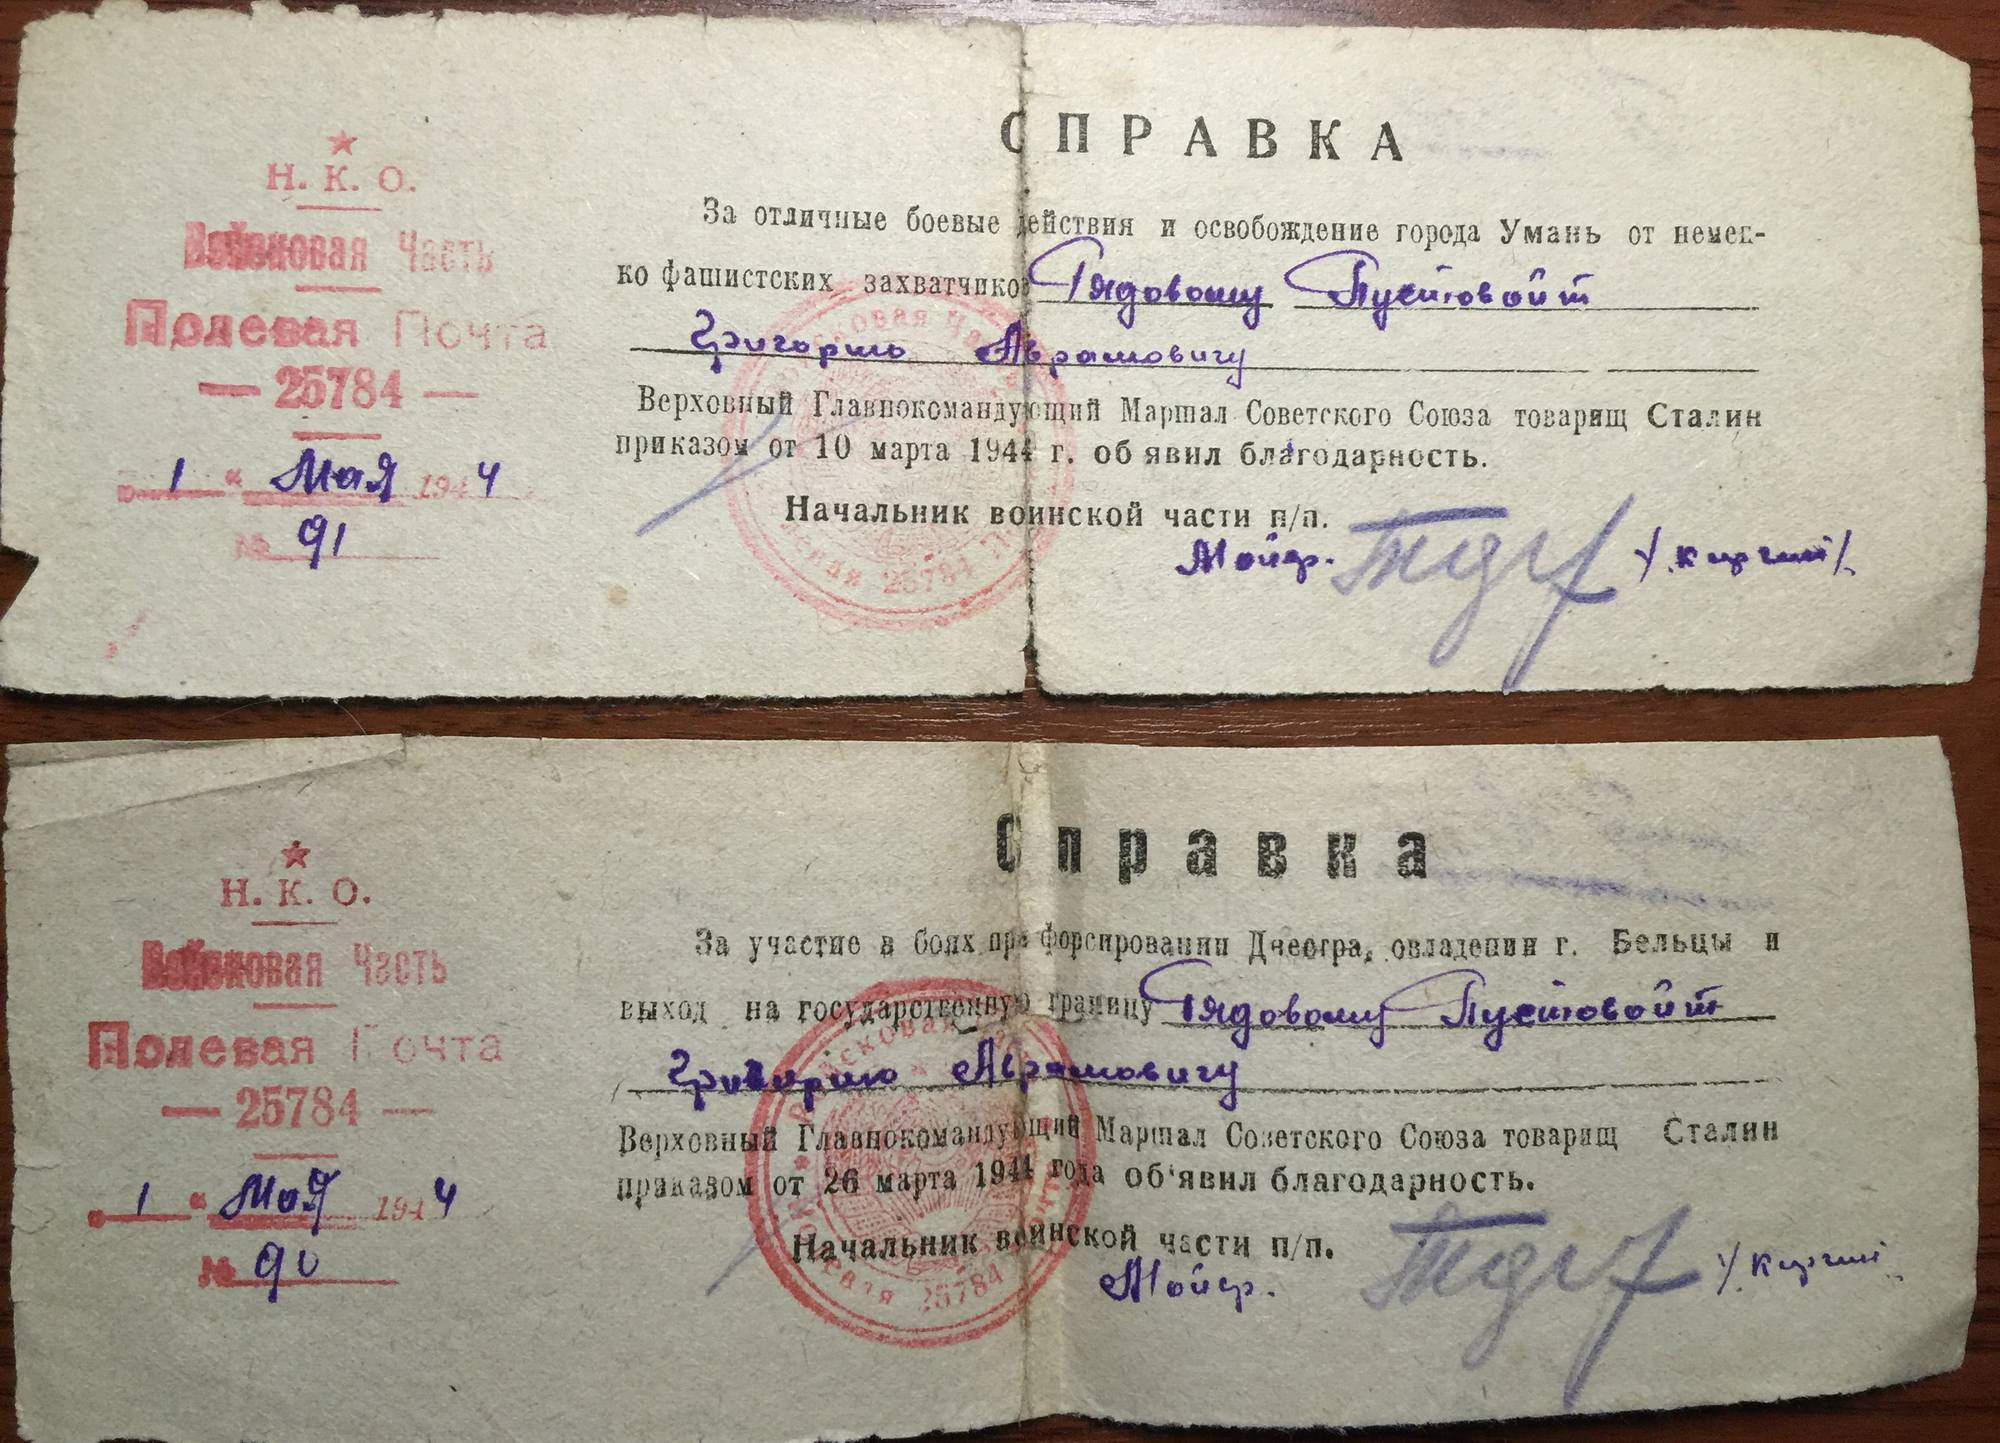 Н. К. О.
Войсковая Часть
Полевая Почта
— 25784 —
1 " Мая 1944
№ 91
СПРАВКА
За отличные боевые действия и освобождение города Умань от немец-
ко фашистских захватчиков Рядовому Пустовойт
Григорию Аврамовичу
Верховный Главнокомандующий Маршал Советского Союза товарищ Сталин
приказом от 10 марта 1944 г. об явил благодарность.
Начальник воинской части п/п.
Майор.
Войсковая Часть
25784
Н. К. О.
Войсковая Часть
Полевая Почта
— 25784 —
1 " Мая 1944
№ 90
Справка
За участие в боях при форсировании Днестра, овладении г. Бельцы и
выход на государственную границу Рядовому Пустовойт
Григорию Аврамовичу
Верховный Главнокомандующий Маршал Советского Союза товарищ Сталин
приказом от 26 марта 1944 года об'явил благодарность.
Начальник воинской части п/п.
Майор.
Войсковая
25784